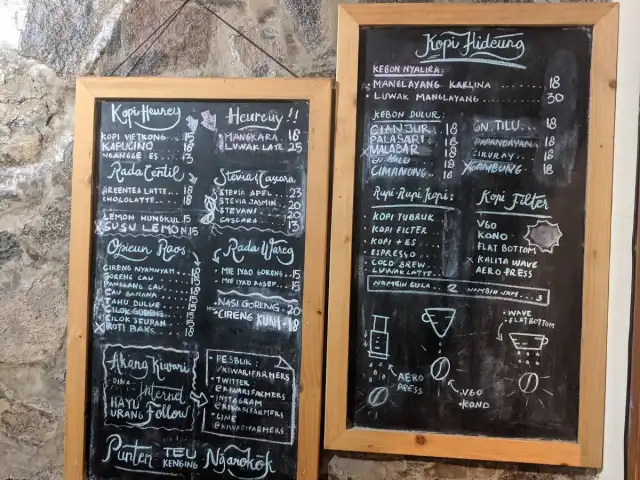 Kopi Heurey
KOPI VIETKONG 15
KAPUCINO 18
NGANGGE ES 3
Rada Centil
GREENTEA LATTE 18
CHOCOLATTE 18
LEMON HUNGKUL 15
SUSU LEMON 15
Opieun Raos
CIRENG NYAMNYAM
GORENG CAU
CAU BANANA 18
TAHU DULUR
CILOK GORENG
CILOK SEUPAN
ROTI BAKR
Akang Kiwari
DINA Internet
HAYU
URANG Follow
Heureuy !!
MANGKARA 18
LUWAK LATE 25
Stevia & Cascara
STEVIA APEL 23
STEVIA JASMIN 20
STEVANI 20
CASCARA 13
Rada Wareg
MIE IYAD GORENG 15
MIE IYAD 15
NASI GORENG 20
CIRENG KUAH 18
PESBUK:
/KIWARIFARMERS
• TWITTER
@KIWARIFARMERS
• INSTAGRAM
@KIWARIFARMERS
• LINE
@KIWARIFARMERS
Punten TEU KENGING Ngarokok
Kopi Hideung
KEBON NYALIRA:
MANGLAYANG KARLINA 18
• LUWAK MANGLAYANG 30
KEBON DULUR:
CIANJUR 18
PALASARI 18
MALABAR 18
CIMAHONG 18
GN. TILU 18
PAPANDAYAN 18
CIKURAY 18
18
Rupi-Rupi Kopi:
• KOPI TUBRUK
• KOPI FILTER
• KOPI + ES
• ESPRESSO
• COLD BREW
• LUWAK LATTE
Kopi Filter
V60
KONO
FLAT BOTTOM
KALITA WAVE
AERO PRESS
NAMBIH GULA 2 NAMBIH JAM 3
AERO PRESS
• V60
• KONO
• WAVE
• FLATBOTTOM